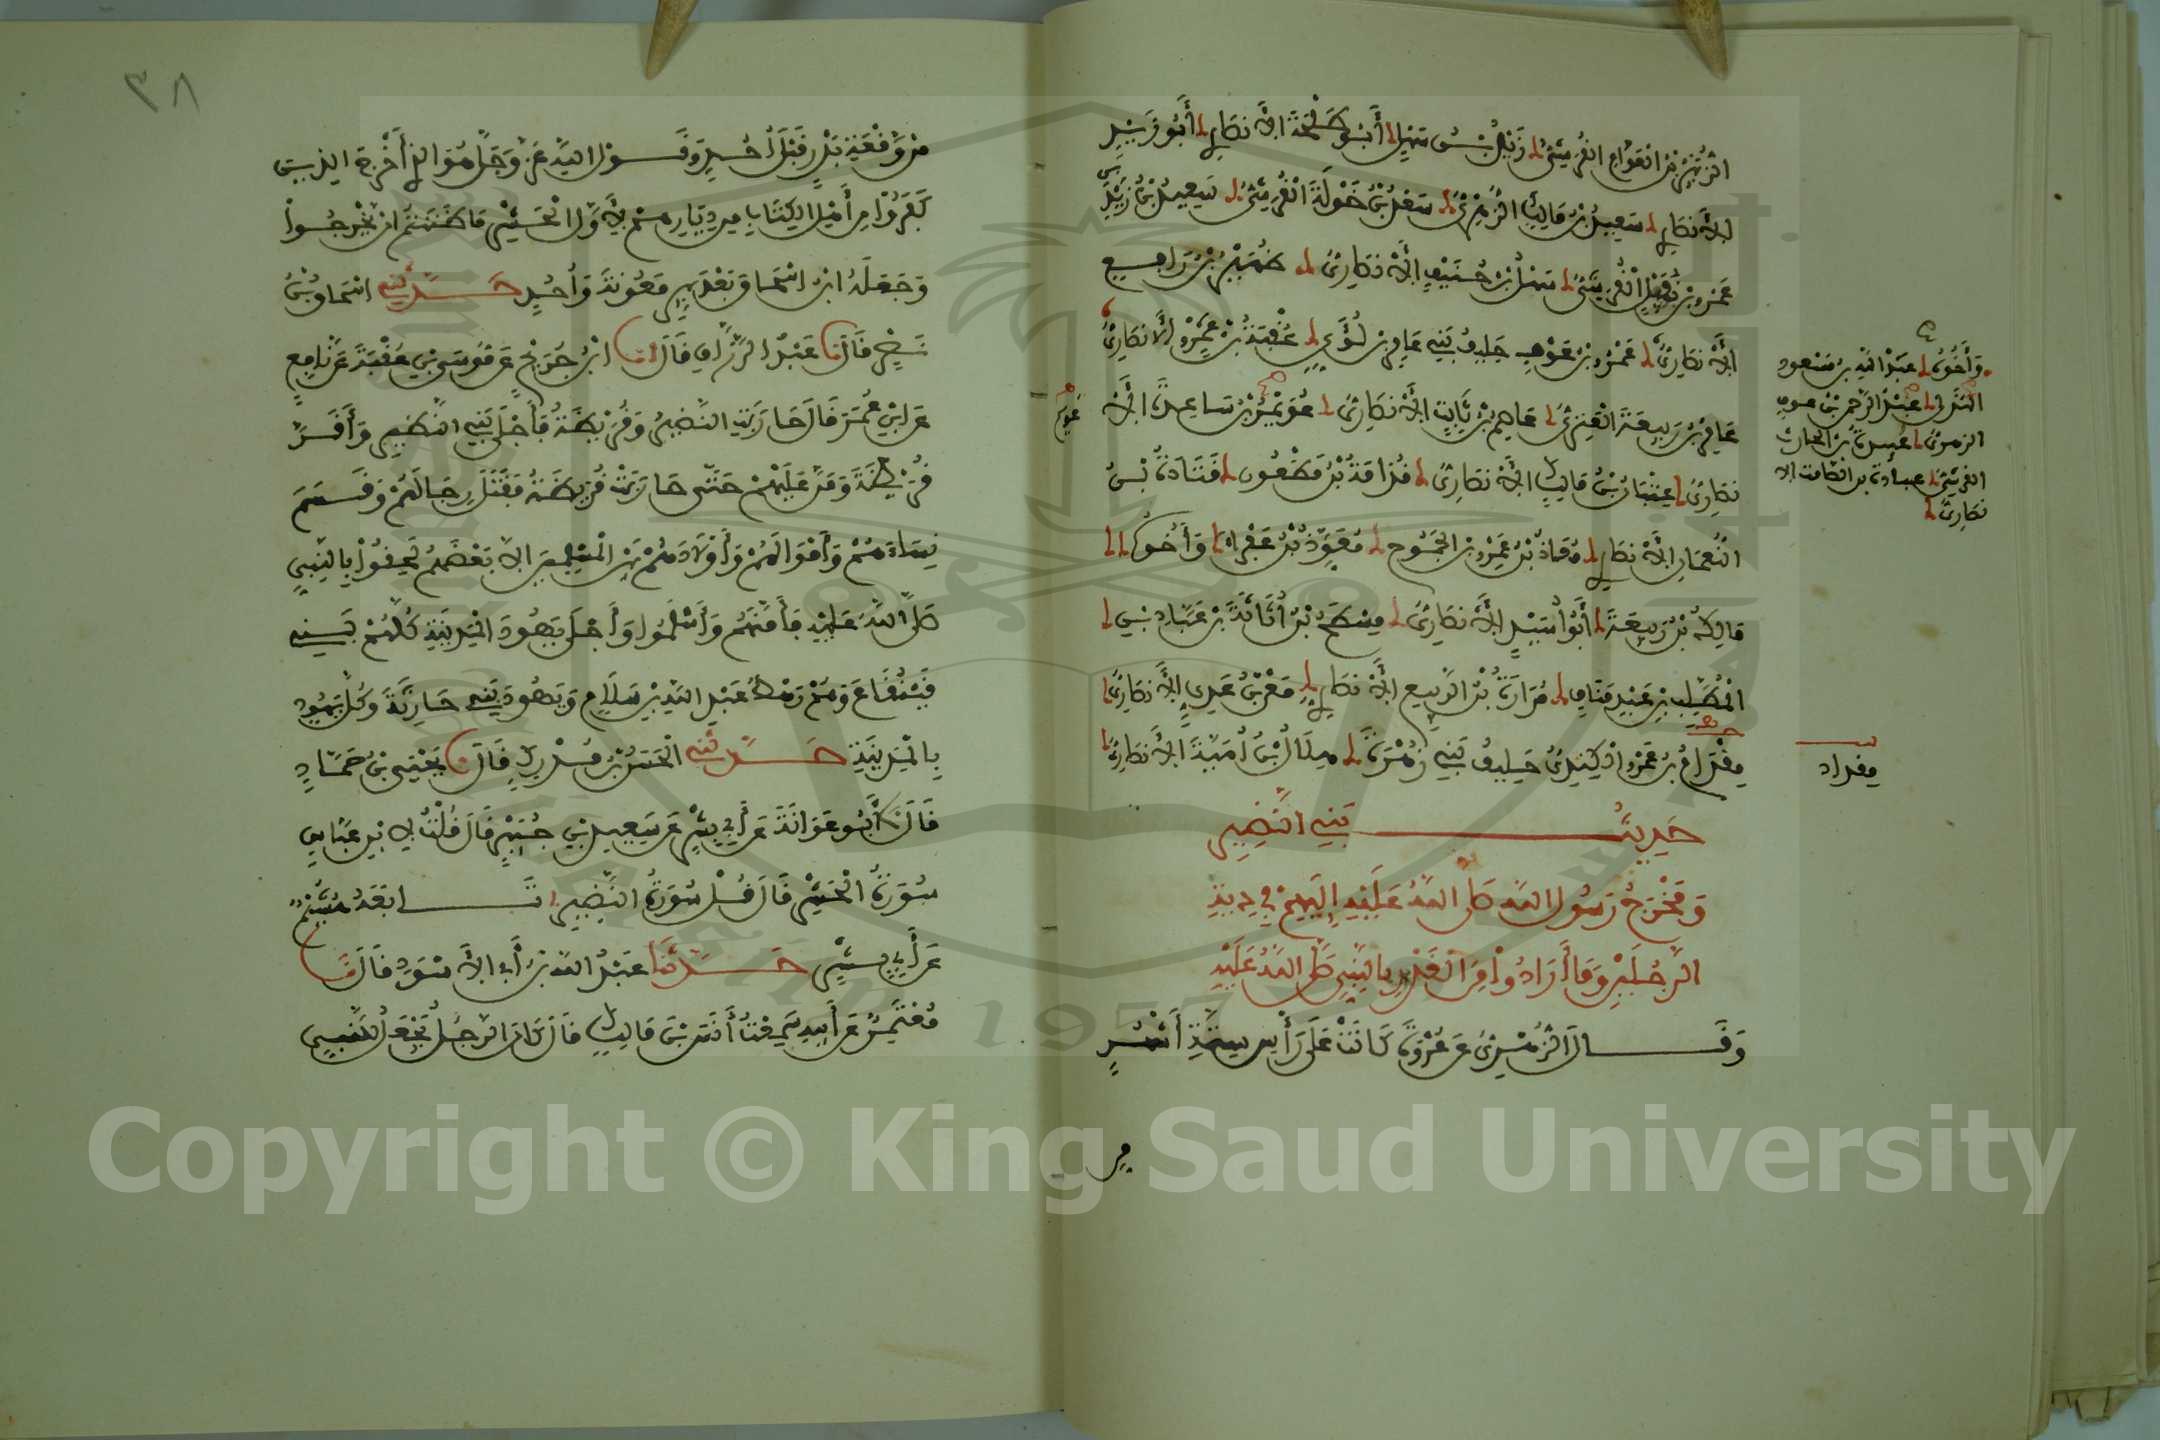 الزُّبَيْرُ بْنُ الْعَوَّامِ الْقُرَشِيُّ زَيْدُ بْنُ سَهْلٍ أَبُو طَلْحَةَ الْأَنْصَارِي أَبُو زَيْدٍ
الْأَنْصَارِي سَعِيدُ بْنُ مَالِكٍ الزُّهْرِيُّ سَعْدُ بْنُ خَوْلَةَ الْقُرَشِيُّ سَعِيدُ بْنُ زَيْدِ بن
عَمْرِو بْنِ نُفَيْلٍ الْقُرَشِيُّ سَهْلُ بْنُ حُنَيْفٍ الْأَنْصَارِيُّ ظُهَيْرُ بْنُ رَافِعٍ
الْأَنْصَارِيُّ عَمْرُو بْنُ عَوْفٍ حَلِيفُ بَنِي عَامِرِ بْنِ لُؤَيٍّ عُقْبَةُ بْنُ عَمْرٍو الْأَنْصَارِيُّ
عَامِرُ بْنُ رَبِيعَةَ الْعَنَزِيُّ عَاصِمُ بْنُ ثَابِتٍ الْأَنْصَارِيُّ عُوَيْمُ بْنُ سَاعِدَةَ الْأَ
نْصَارِيُّ عِتْبَانُ بْنُ مَالِكٍ الْأَنْصَارِيُّ قُدَامَةُ بْنُ مَظْعُونٍ قَتَادَةُ بْنُ
النُّعْمَانِ الْأَنْصَارِي مُعَاذُ بْنُ عَمْرِو بْنِ الْجَمُوحِ مُعَوِّذُ بْنُ عَفْرَاءَ وَأَخُوهُ
مَالِكُ بْنُ رَبِيعَةَ أَبُو أُسَيْدٍ الْأَنْصَارِيُّ مِسْطَحُ بْنُ أُثَاثَةَ بْنِ عَبَّادِ بْنِ
الْمُطَّلِبِ بْنِ عَبْدِ مَنَافٍ مُرَارَةُ بْنُ الرَّبِيعِ الْأَنْصَارِي مَعْنُ بْنُ عَدِيٍّ الْأَنْصَارِيُّ
مِقْدَامُ بْنُ عَمْرٍو الْكِنْدِيُّ حَلِيفُ بَنِي زُهْرَةَ هِلَالُ بْنُ أُمَيَّةَ الْأَنْصَارِيُّ
حَدِيثُ بَنِي النَّضِيرِ
وَمَخْرَجُ رَسُولِ اللهِ صَلَّى اللهُ عَلَيْهِ إِلَيْهِمْ فِي دِيَةِ
الرَّجُلَيْنِ وَمَا أَرَادُوا مِنَ الْغَدْرِ بِالنَّبِيِّ صَلَّى اللهُ عَلَيْهِ
وَقَالَ الزُّهْرِيُّ عَنْ عُرْوَةَ كَانَتْ عَلَى رَأْسِ سِتَّةِ أَشْهُرٍ
من
وَأَخُوهُ عبد الله بن مسعود
الهذلي عبد الرحمن بن عوف
الزهري عبيدة بن الحارث
القرشي عبادة بن الصامت الا
نصاري
مقداد
٣٨
مِنْ وَقْعَةِ بَدْرٍ قَبْلَ أُحُدٍ وَقَوْلِ اللهِ عَزَّ وَجَلَّ هُوَ الَّذِي أَخْرَجَ الَّذِينَ
كَفَرُوا مِنْ أَهْلِ الْكِتَابِ مِنْ دِيَارِهِمْ لِأَوَّلِ الْحَشْرِ مَا ظَنَنْتُمْ أَنْ يَخْرُجُوا
وَجَعَلَهُ ابْنُ إِسْحَاقَ بَعْدَ بِيرِ مَعُونَةَ وَأُحُدٍ حَدَّثَنِي إِسْحَاقُ بْنُ
نَصْرٍ قَالَ نا عَبْدُ الرَّزَّاقِ قَالَ انا ابْنُ جُرَيْجٍ عَنْ مُوسَى بْنِ عُقْبَةَ عَنْ نَافِعٍ
عَنِ ابْنِ عُمَرَ قَالَ حَارَبَتِ النَّضِيرُ وَقُرَيْظَةُ فَأَجْلَى بَنِي النَّضِيرِ وَأَقَرَّ
قُرَيْظَةَ وَمَنَّ عَلَيْهِمْ حَتَّى حَارَبَتْ قُرَيْظَةُ فَقَتَلَ رِجَالَهُمْ وَقَسَمَ
نِسَاءَهُمْ وَأَمْوَالَهُمْ وَأَوْلَادَهُمْ بَيْنَ الْمُسْلِمِينَ إِلَّا بَعْضَهُمْ لَحِقُوا بِالنَّبِيِّ
صَلَّى اللهُ عَلَيْهِ فَأَمَّنَهُمْ وَأَسْلَمُوا وَأَجْلَى يَهُودَ الْمَدِينَةِ كُلَّهُمْ بَنِي
قَيْنُقَاعَ وَهُمْ رَهْطُ عَبْدِ اللهِ بْنِ سَلَامٍ وَيَهُودَ بَنِي حَارِثَةَ وَكُلَّ يَهُودِ
بِالْمَدِينَةِ حَدَّثَنِي الْحَسَنُ بْنُ مُدْرِكٍ قَالَ نا يَحْيَى بْنُ حَمَّادٍ
قَالَ نا أَبُو عَوَانَةَ عَنْ أَبِي بِشْرٍ عَنْ سَعِيدِ بْنِ جُبَيْرٍ قَالَ قُلْتُ لِابْنِ عَبَّاسٍ
سُورَةُ الْحَشْرِ قَالَ قُلْ سُورَةُ النَّضِيرِ تَابَعَهُ هُشَيْمٌ
عَنْ أَبِي بِشْرٍ حَدَّثَنَا عَبْدُ اللهِ بْنُ أَبِي الْأَسْوَدِ قَالَ نا
مُعْتَمِرٌ عَنْ أَبِيهِ سَمِعْتُ أَنَسَ بْنَ مَالِكٍ قَالَ كَانَ الرَّجُلُ يَجْعَلُ لِلنَّبِيِّ
Copyright © King Saud University
1957